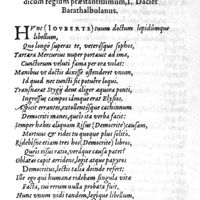 dicum regium præstantissimum, I. Daciet
Barathalbulanus.
HVnc (IOVBERTE) tuum doctum lepidúmque
libellum,
Quo longè superas te, veterésque sophos,
Tartara Mercurius nuper portauit ad ima,
Cunctorum veluti fama per ora volat:
Manibus vt doctis dixisse ostenderet vnum,
Id quod nec cuncti sic potuêre loqui.
Transierat Stygÿ
Ingressus campos umque ad Elysios,
Ecce caput quassans tremulóque cachinno
Democriti manes, quis ita verba facit:
Semper habes aliquam Risus (Democrite) causam,
Mortuus & rides in quoque plus solito.
Ridebísne etiam tres hos (Democrite) libros,
Queis risus ratio, verdáque causa patet?
Oblatus capit arridens, legit atque papyros
Democritus, lectis talia deinde refert:
Ille ego qui humana ridebam singula vita
Facta, cui rerum nulla probata fuit,
Hunc vnum vidi tandem, legíque libellum,